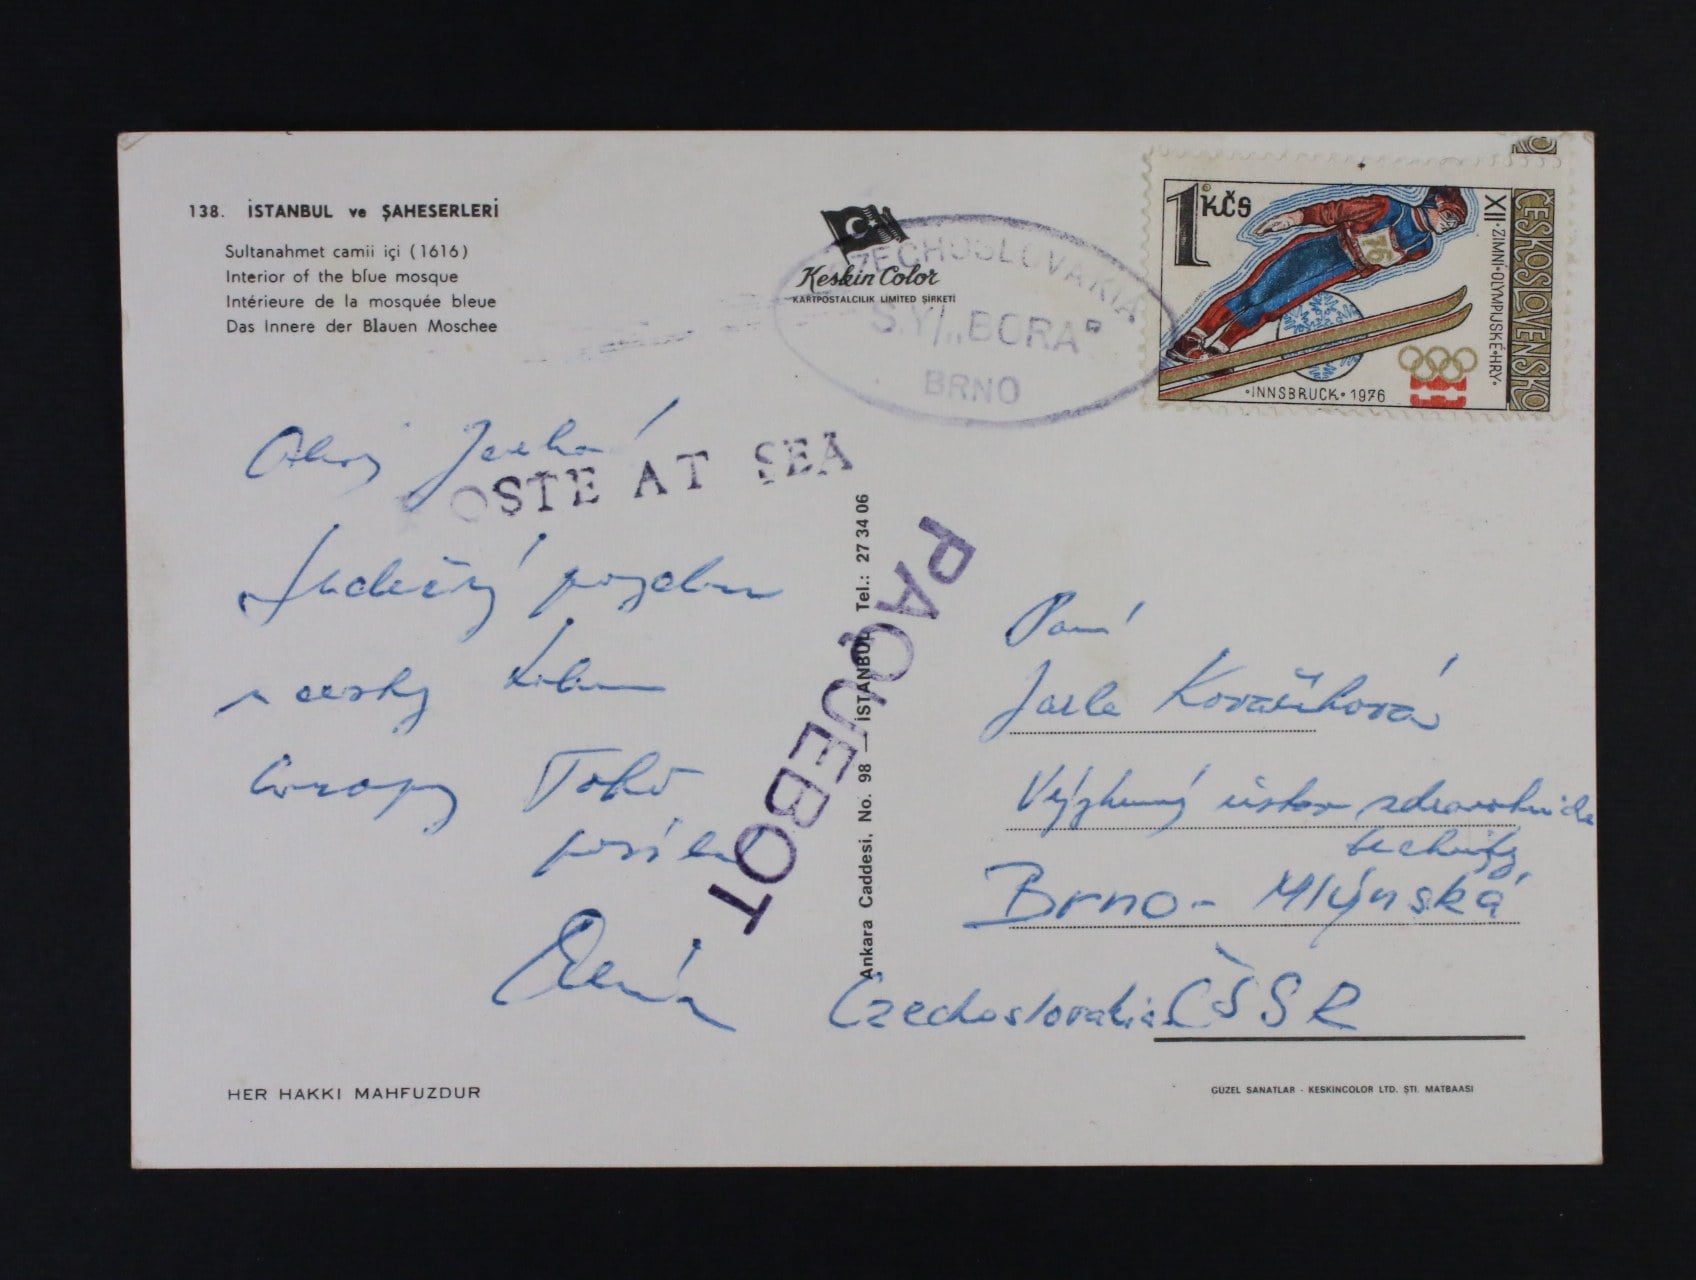 138. İSTANBUL ve ŞAHESERLERİ
Sultanahmet camii içi (1616)
Interior of the blue mosque
Intérieure de la mosquée bleue
Das Innere der Blauen Moschee
Keskin Color
KARTPOSTALCILIK LIMITED ŞIRKETI
CZECHOSLOVAKIA
S.Y. „BORA"
BRNO
1 KČS
XII·ZIMNÍ·OLYMPIJSKÉ·HRY·
ČESKOSLOVENSKO
76
·INNSBRUCK·1976
Ahoj
OSTE AT SEA
PAQUEBOT
Srdečný pozdrav
z cesty kolem
Evropy
posílá
Ankara Caddesi. No. 98 — İSTANBUL Tel.: 27 34 06
Paní
Jarka Kovaříková
Výzkumný ústav zdravotnické
techniky
Brno - Mlýnská
Czechoslovakia ČSSR
HER HAKKI MAHFUZDUR
GÜZEL SANATLAR - KESKINCOLOR LTD. ŞTI. MATBAASI